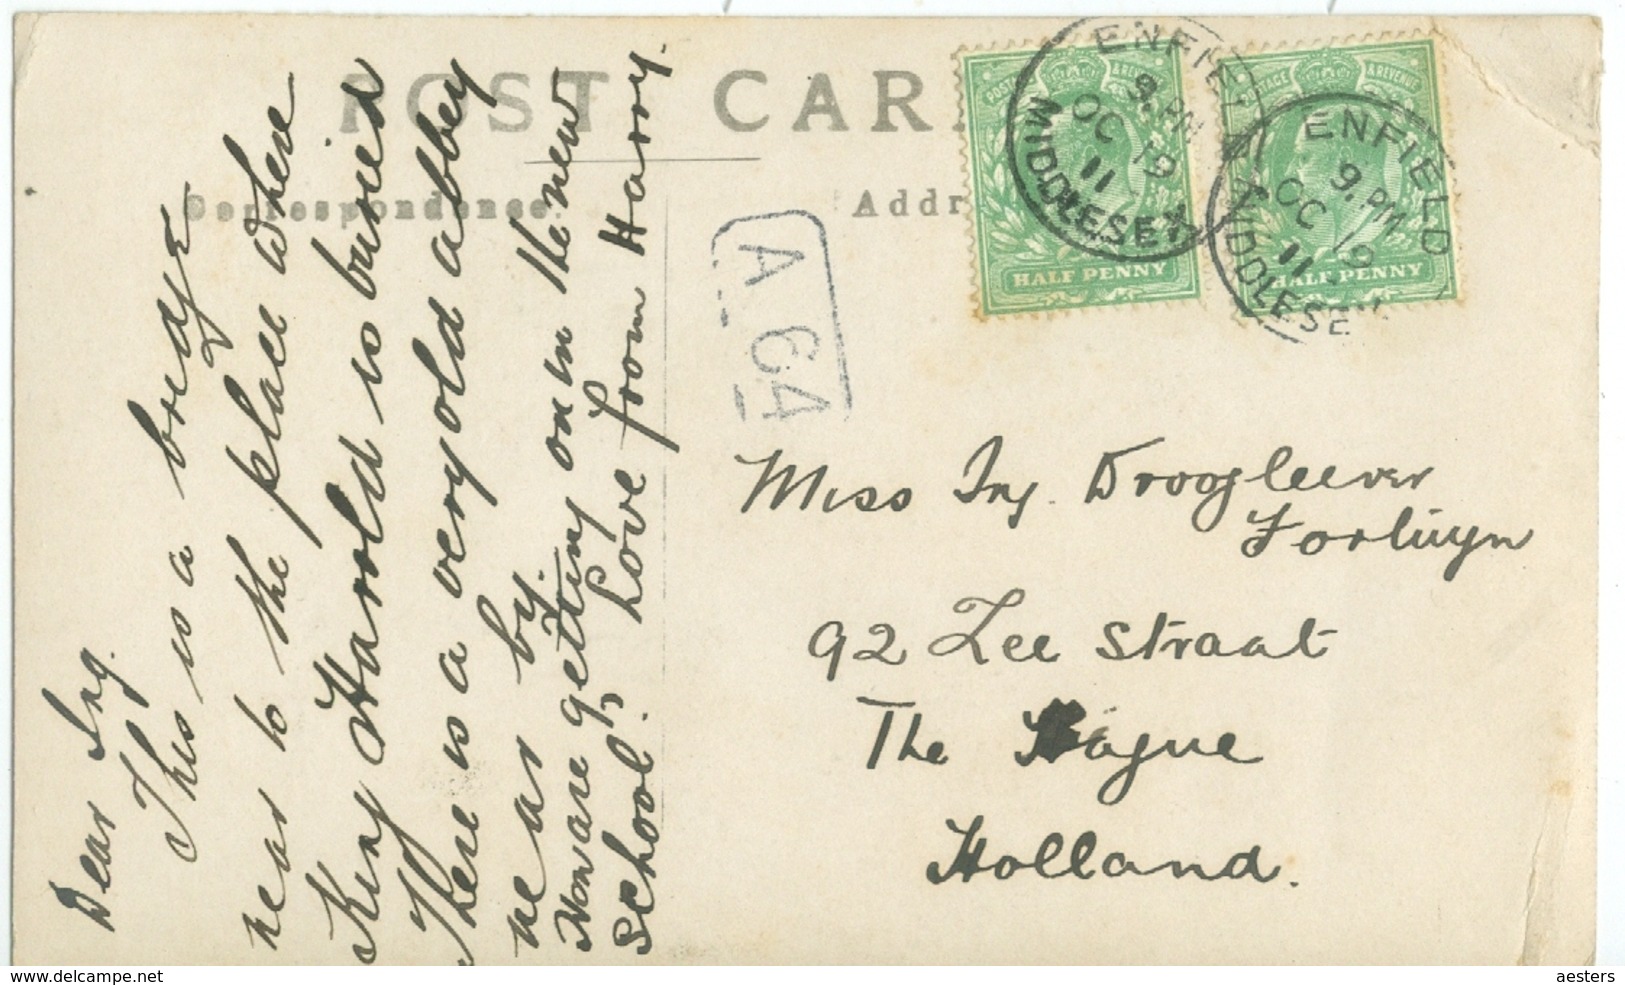 POST CARD
Correspondence.
Addr
POSTAGE & REVENUE
HALF PENNY
POSTAGE & REVENUE
HALF PENNY
ENFIELD
9. PM
OC 19
11
MIDDLESEX
ENFIELD
9. PM
OC 19
11
MIDDLESE
A. 64
Dear Ing.
This is a bridge
near to the place where
King Harold is buried
There is a very old abbey
near by.
How are getting on in the new
School? Love from Harry.
Miss Ing. Droogleever
Fortuyn
92 Zee straat
The Hague
Holland.
www.delcampe.net
aesters